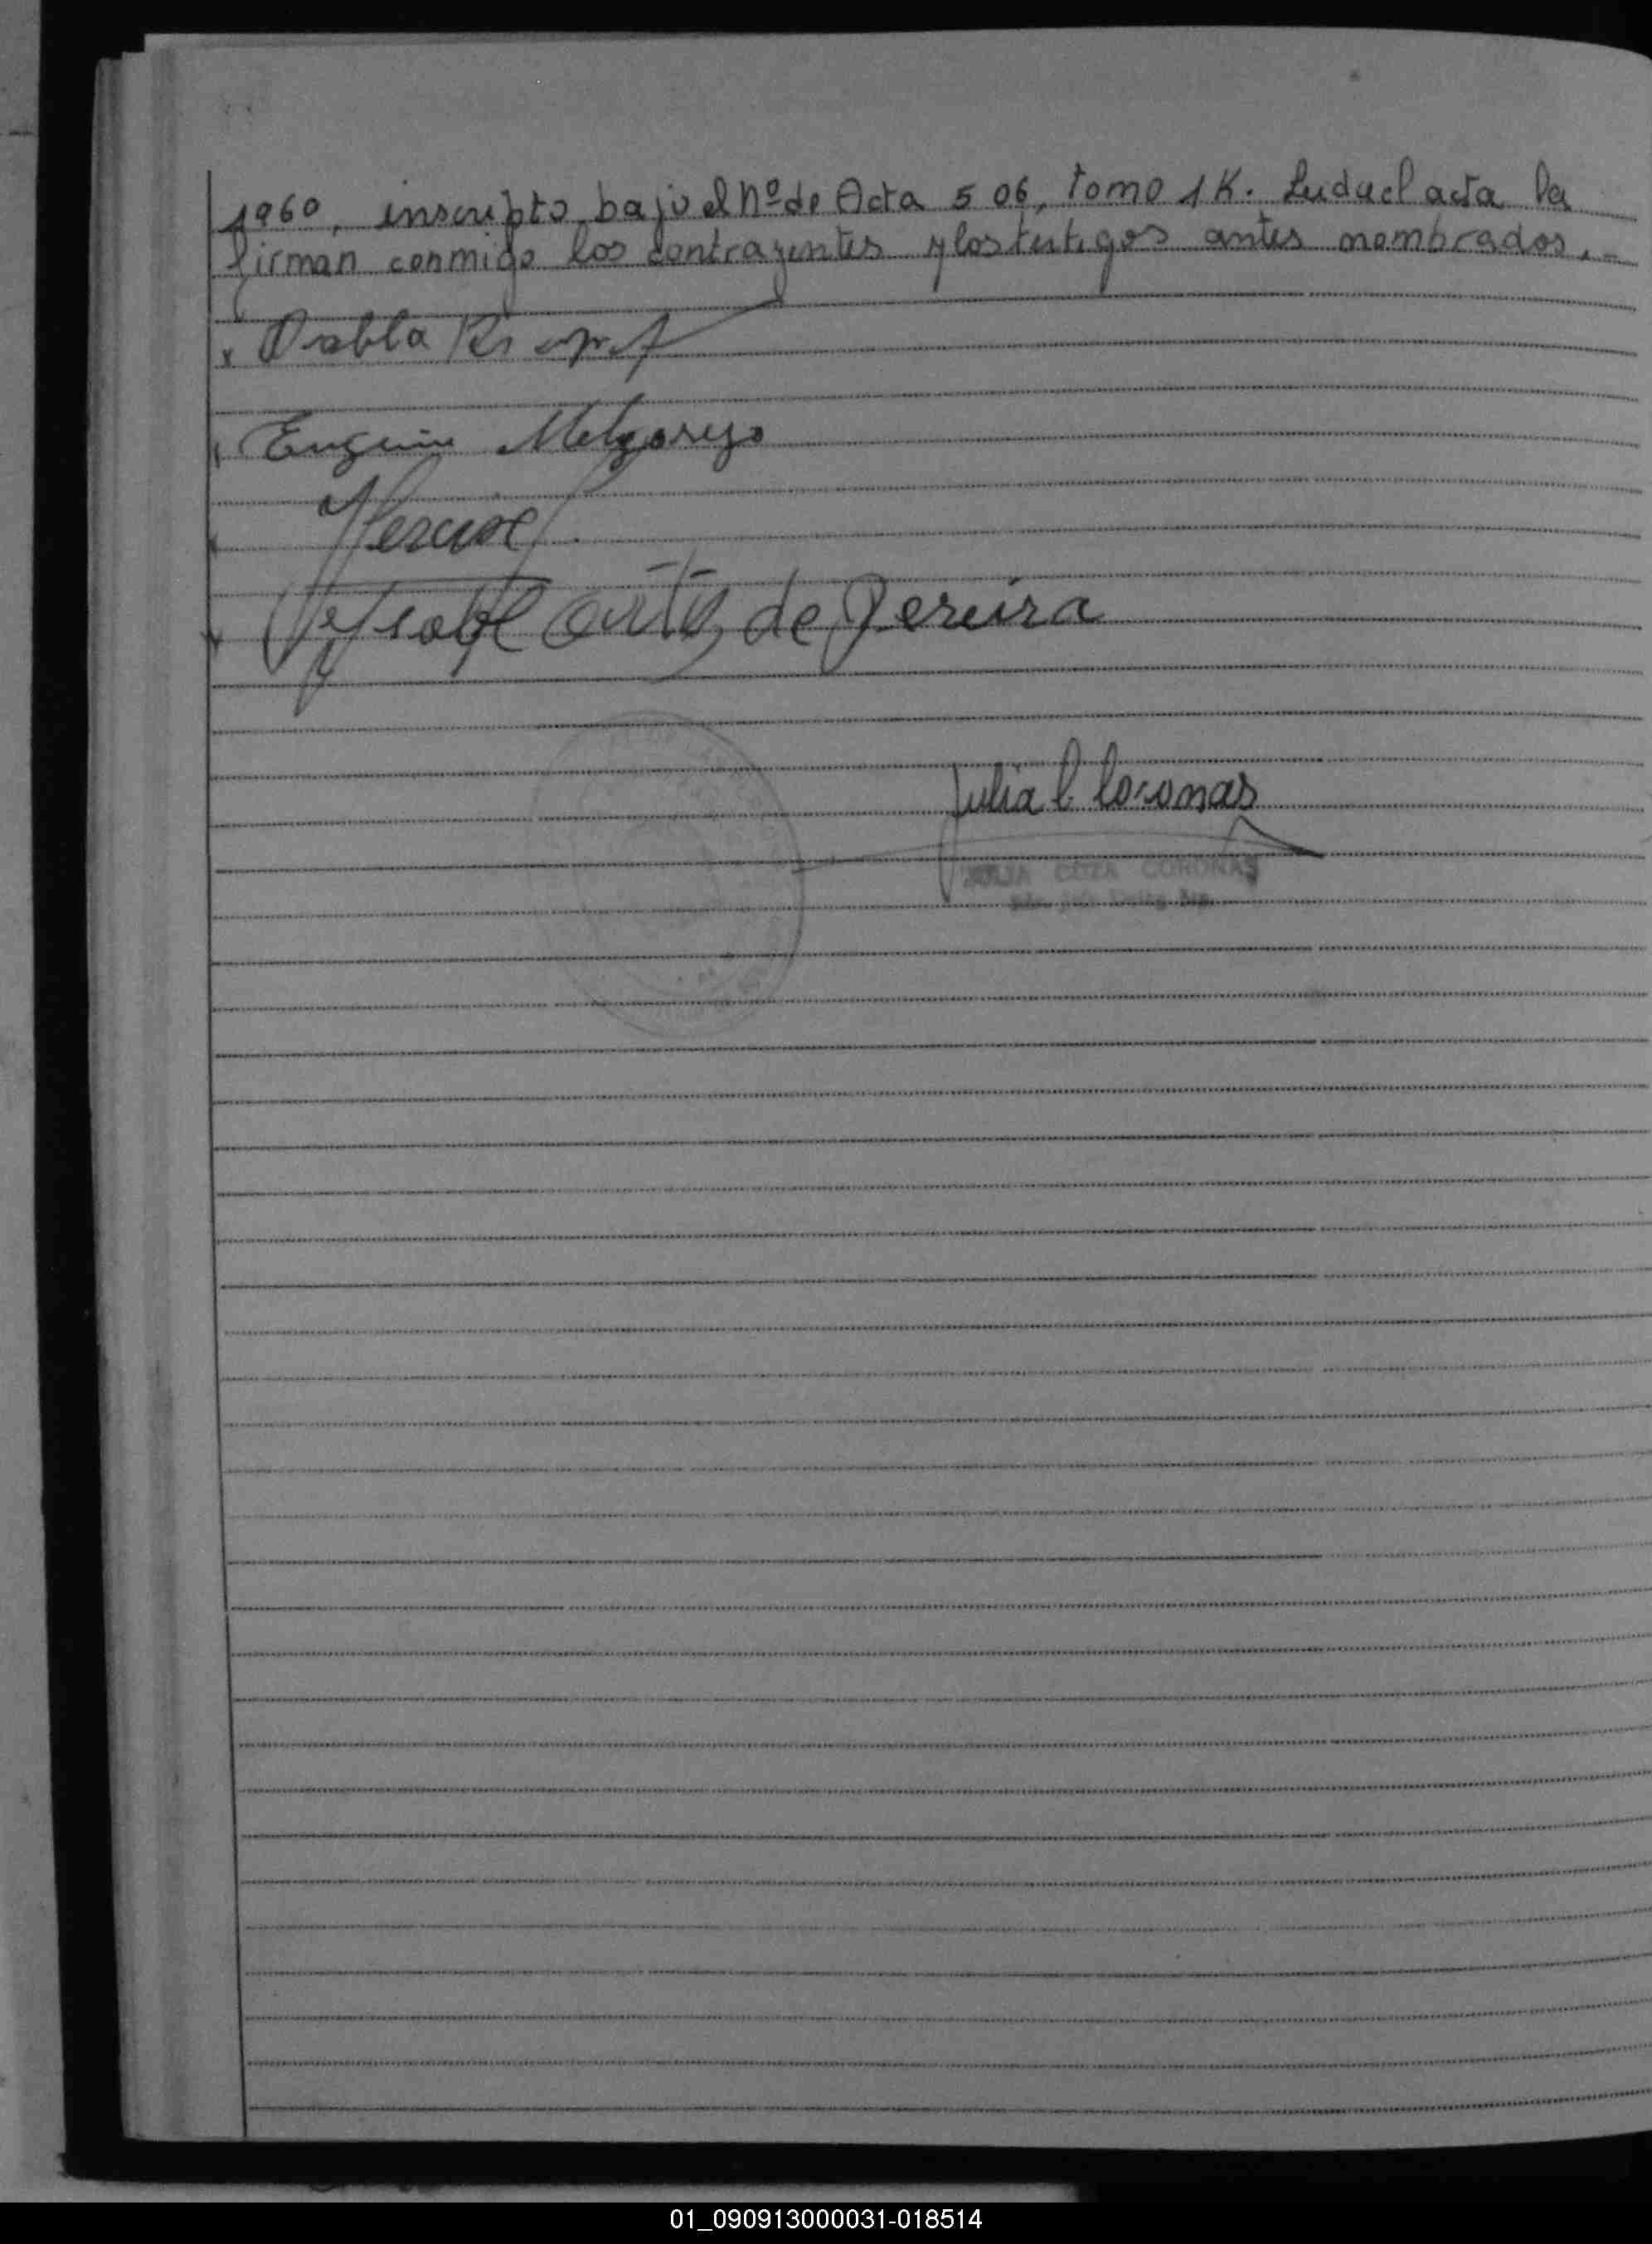 1960, inscripto bajo el Nº de Acta 506, tomo 1K. Leida el acta la
firman conmigo los contrayentes y los testigos antes nombrados.-
x Pabla
Eugenio Melgarejo
Ysabel Ortiz de Pereira
Julia C. Coronas
JULIA COZA CORONAS
01_090913000031-018514